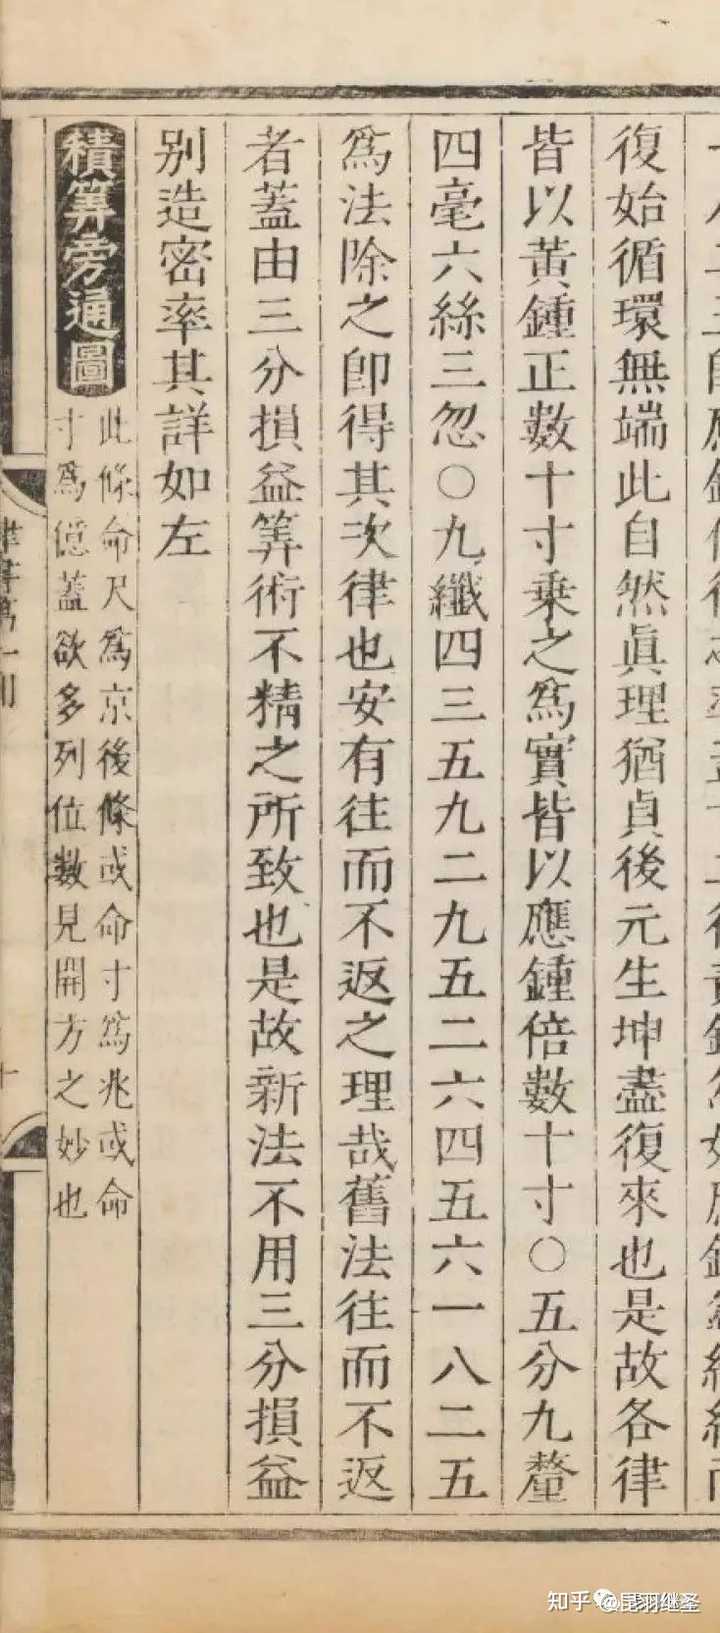 復始循環無端此自然眞理猶貞後元生坤盡復來也是故各律
皆以黃鍾正數十寸乘之爲實皆以應鍾倍數十寸○五分九釐
四毫六絲三忽○九纖四三五九二九五二六四五六一八二五
爲法除之卽得其次律也安有往而不返之理哉舊法往而不返
者蓋由三分損益筭術不精之所致也是故新法不用三分損益
别造密率其詳如左
積筭旁通圖
此條命尺爲京後條或命寸爲兆或命
寸爲億蓋欲多列位數見開方之妙也
知乎 @昆羽继圣